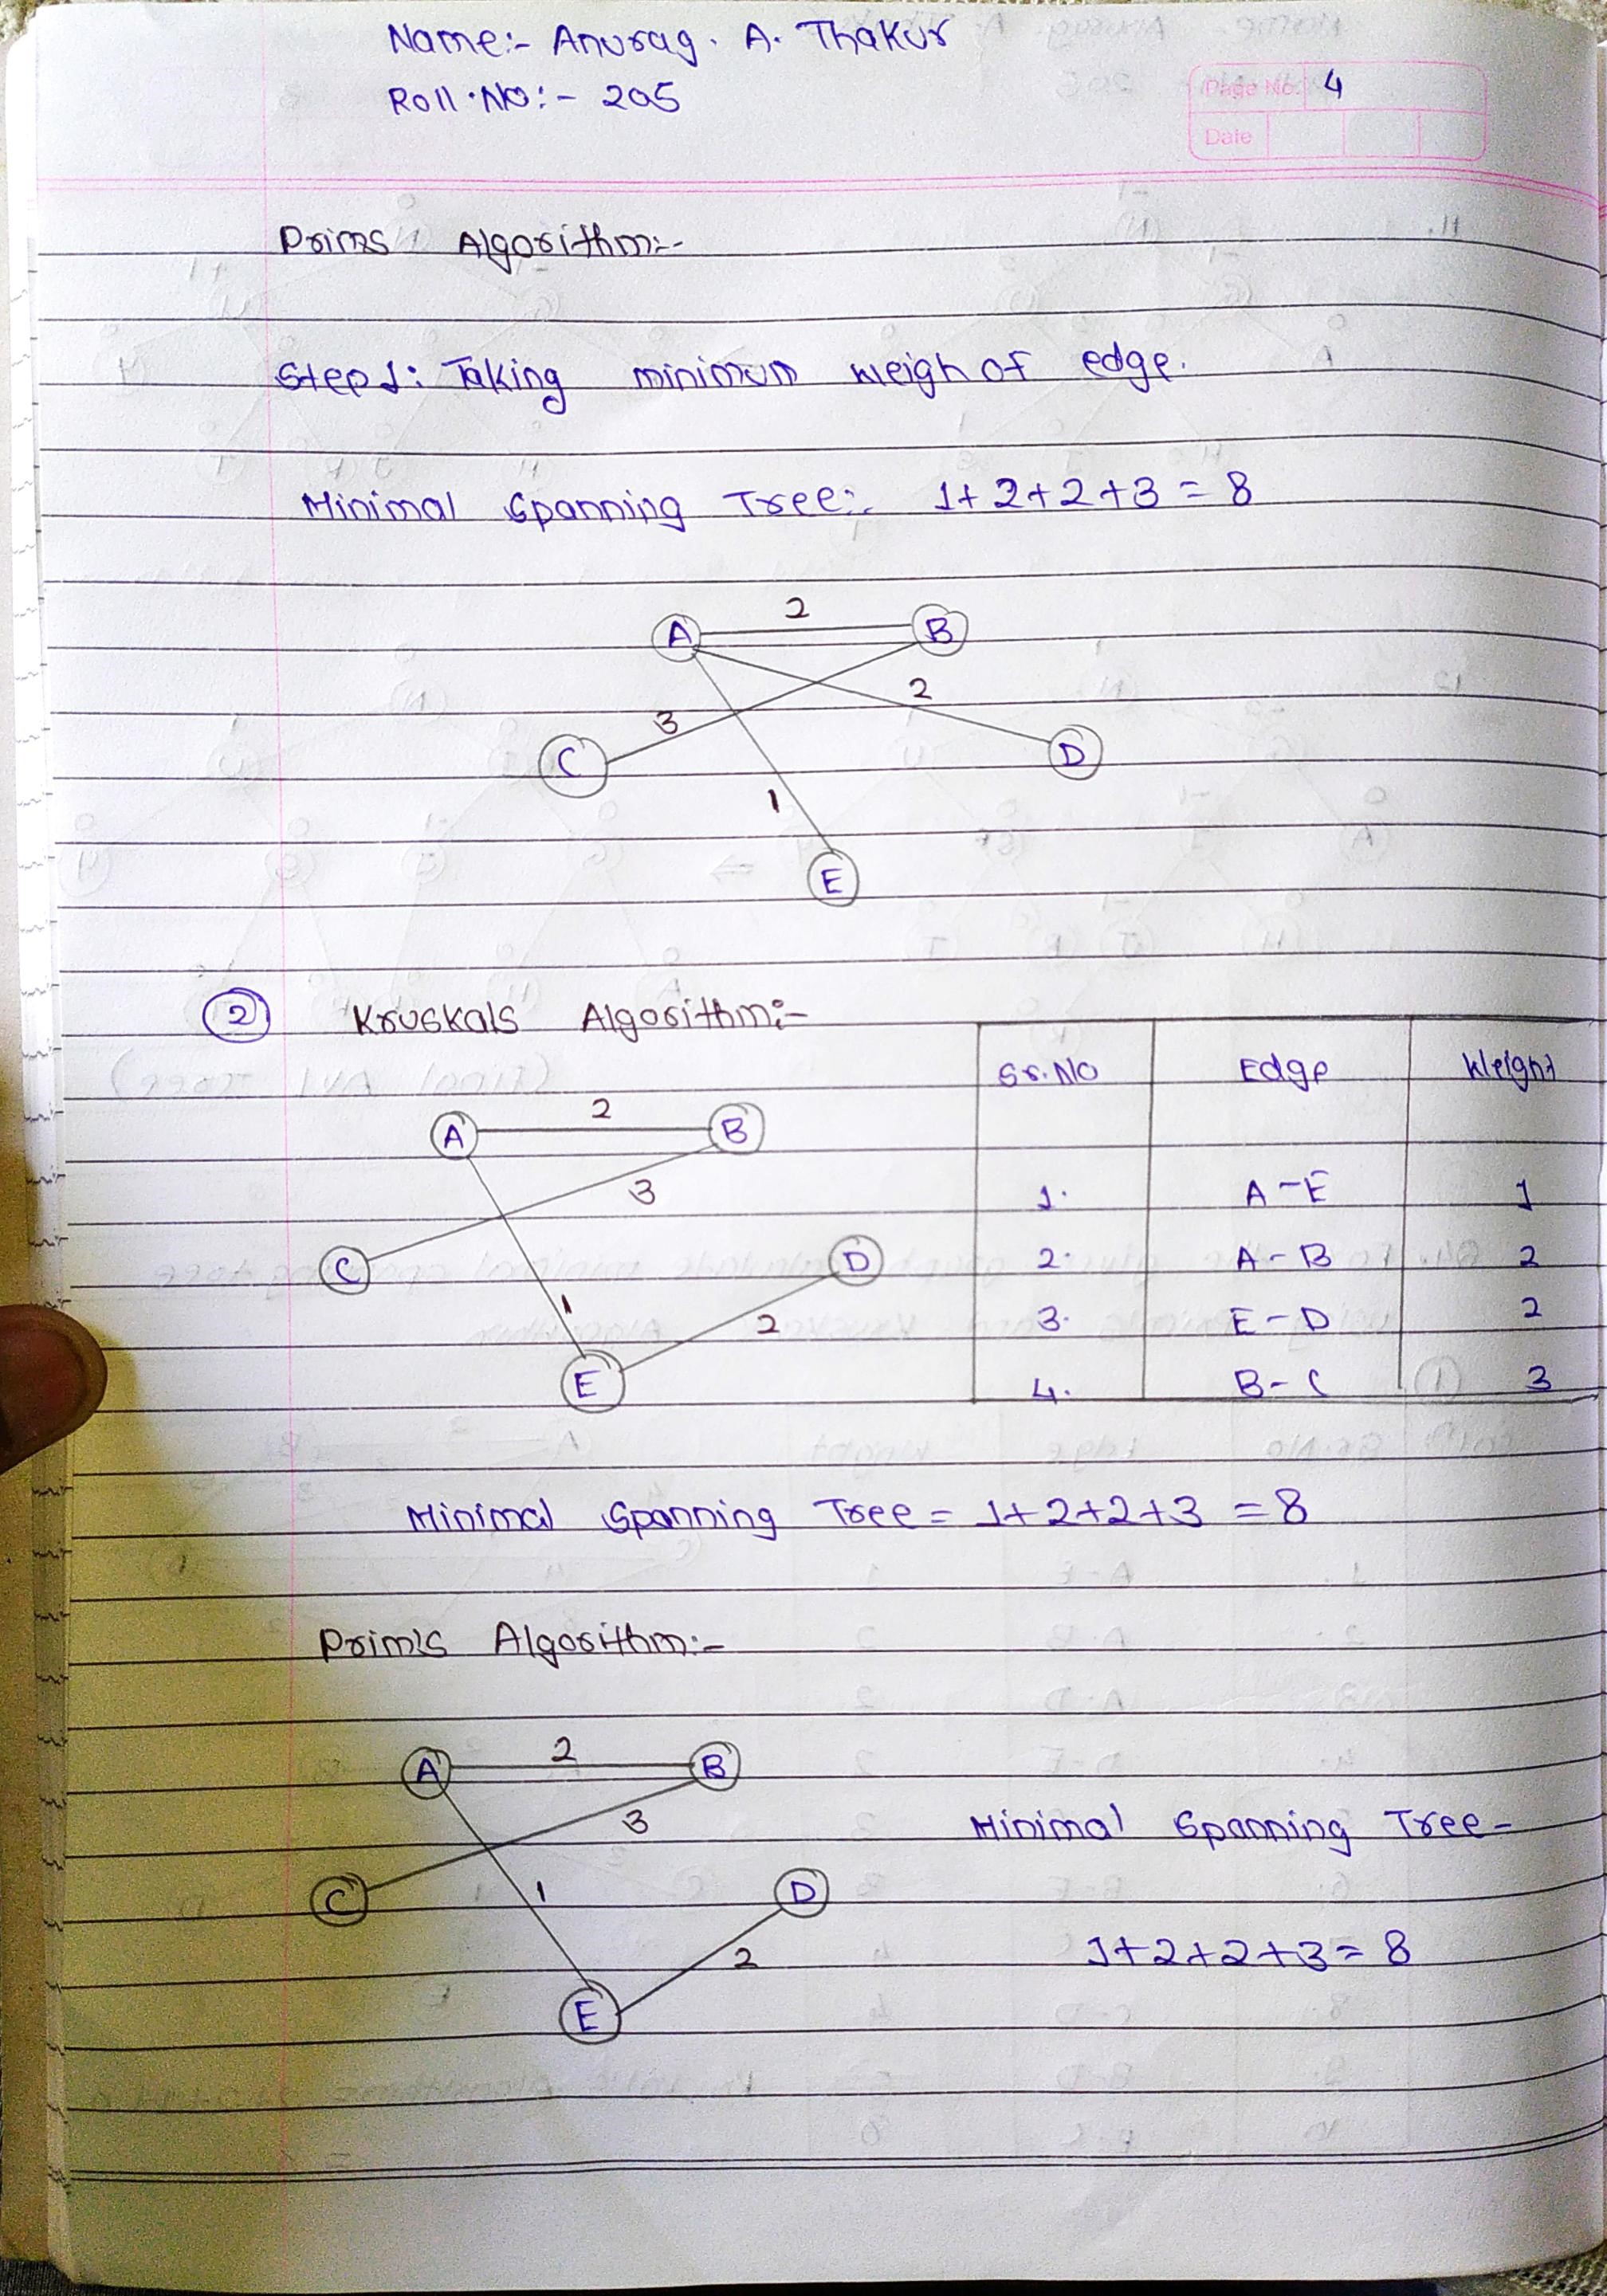 Name:- Anurag. A. Thakur
Roll.No:- 205
Page No. 4
Date
Prims Algorithm:-
Step 1: Taking minimum weigh of edge.
Minimal Spanning Tree:- 1+2+2+3=8
2
A B
2
3
C D
1
E
2 Kruskals Algorithm:-
Sr.No Edge Weight
2
A B
3
1. A-E 1
C D
2. A-B 2
1
2
3. E-D 2
E
4. B-C 3
Minimal Spanning Tree = 1+2+2+3 = 8
Prim's Algorithm:-
2
A B
3
Minimal Spanning Tree-
C 1 D
2
1+2+2+3=8
E